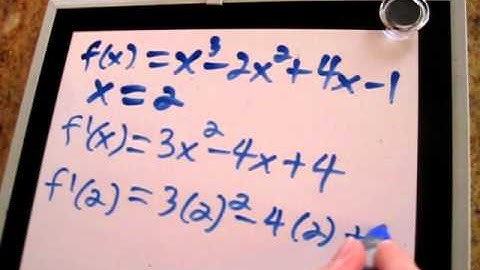 f(x) = x³ - 2x² + 4x - 1
x = 2
f'(x) = 3x² - 4x + 4
f'(2) = 3(2)² - 4(2) +